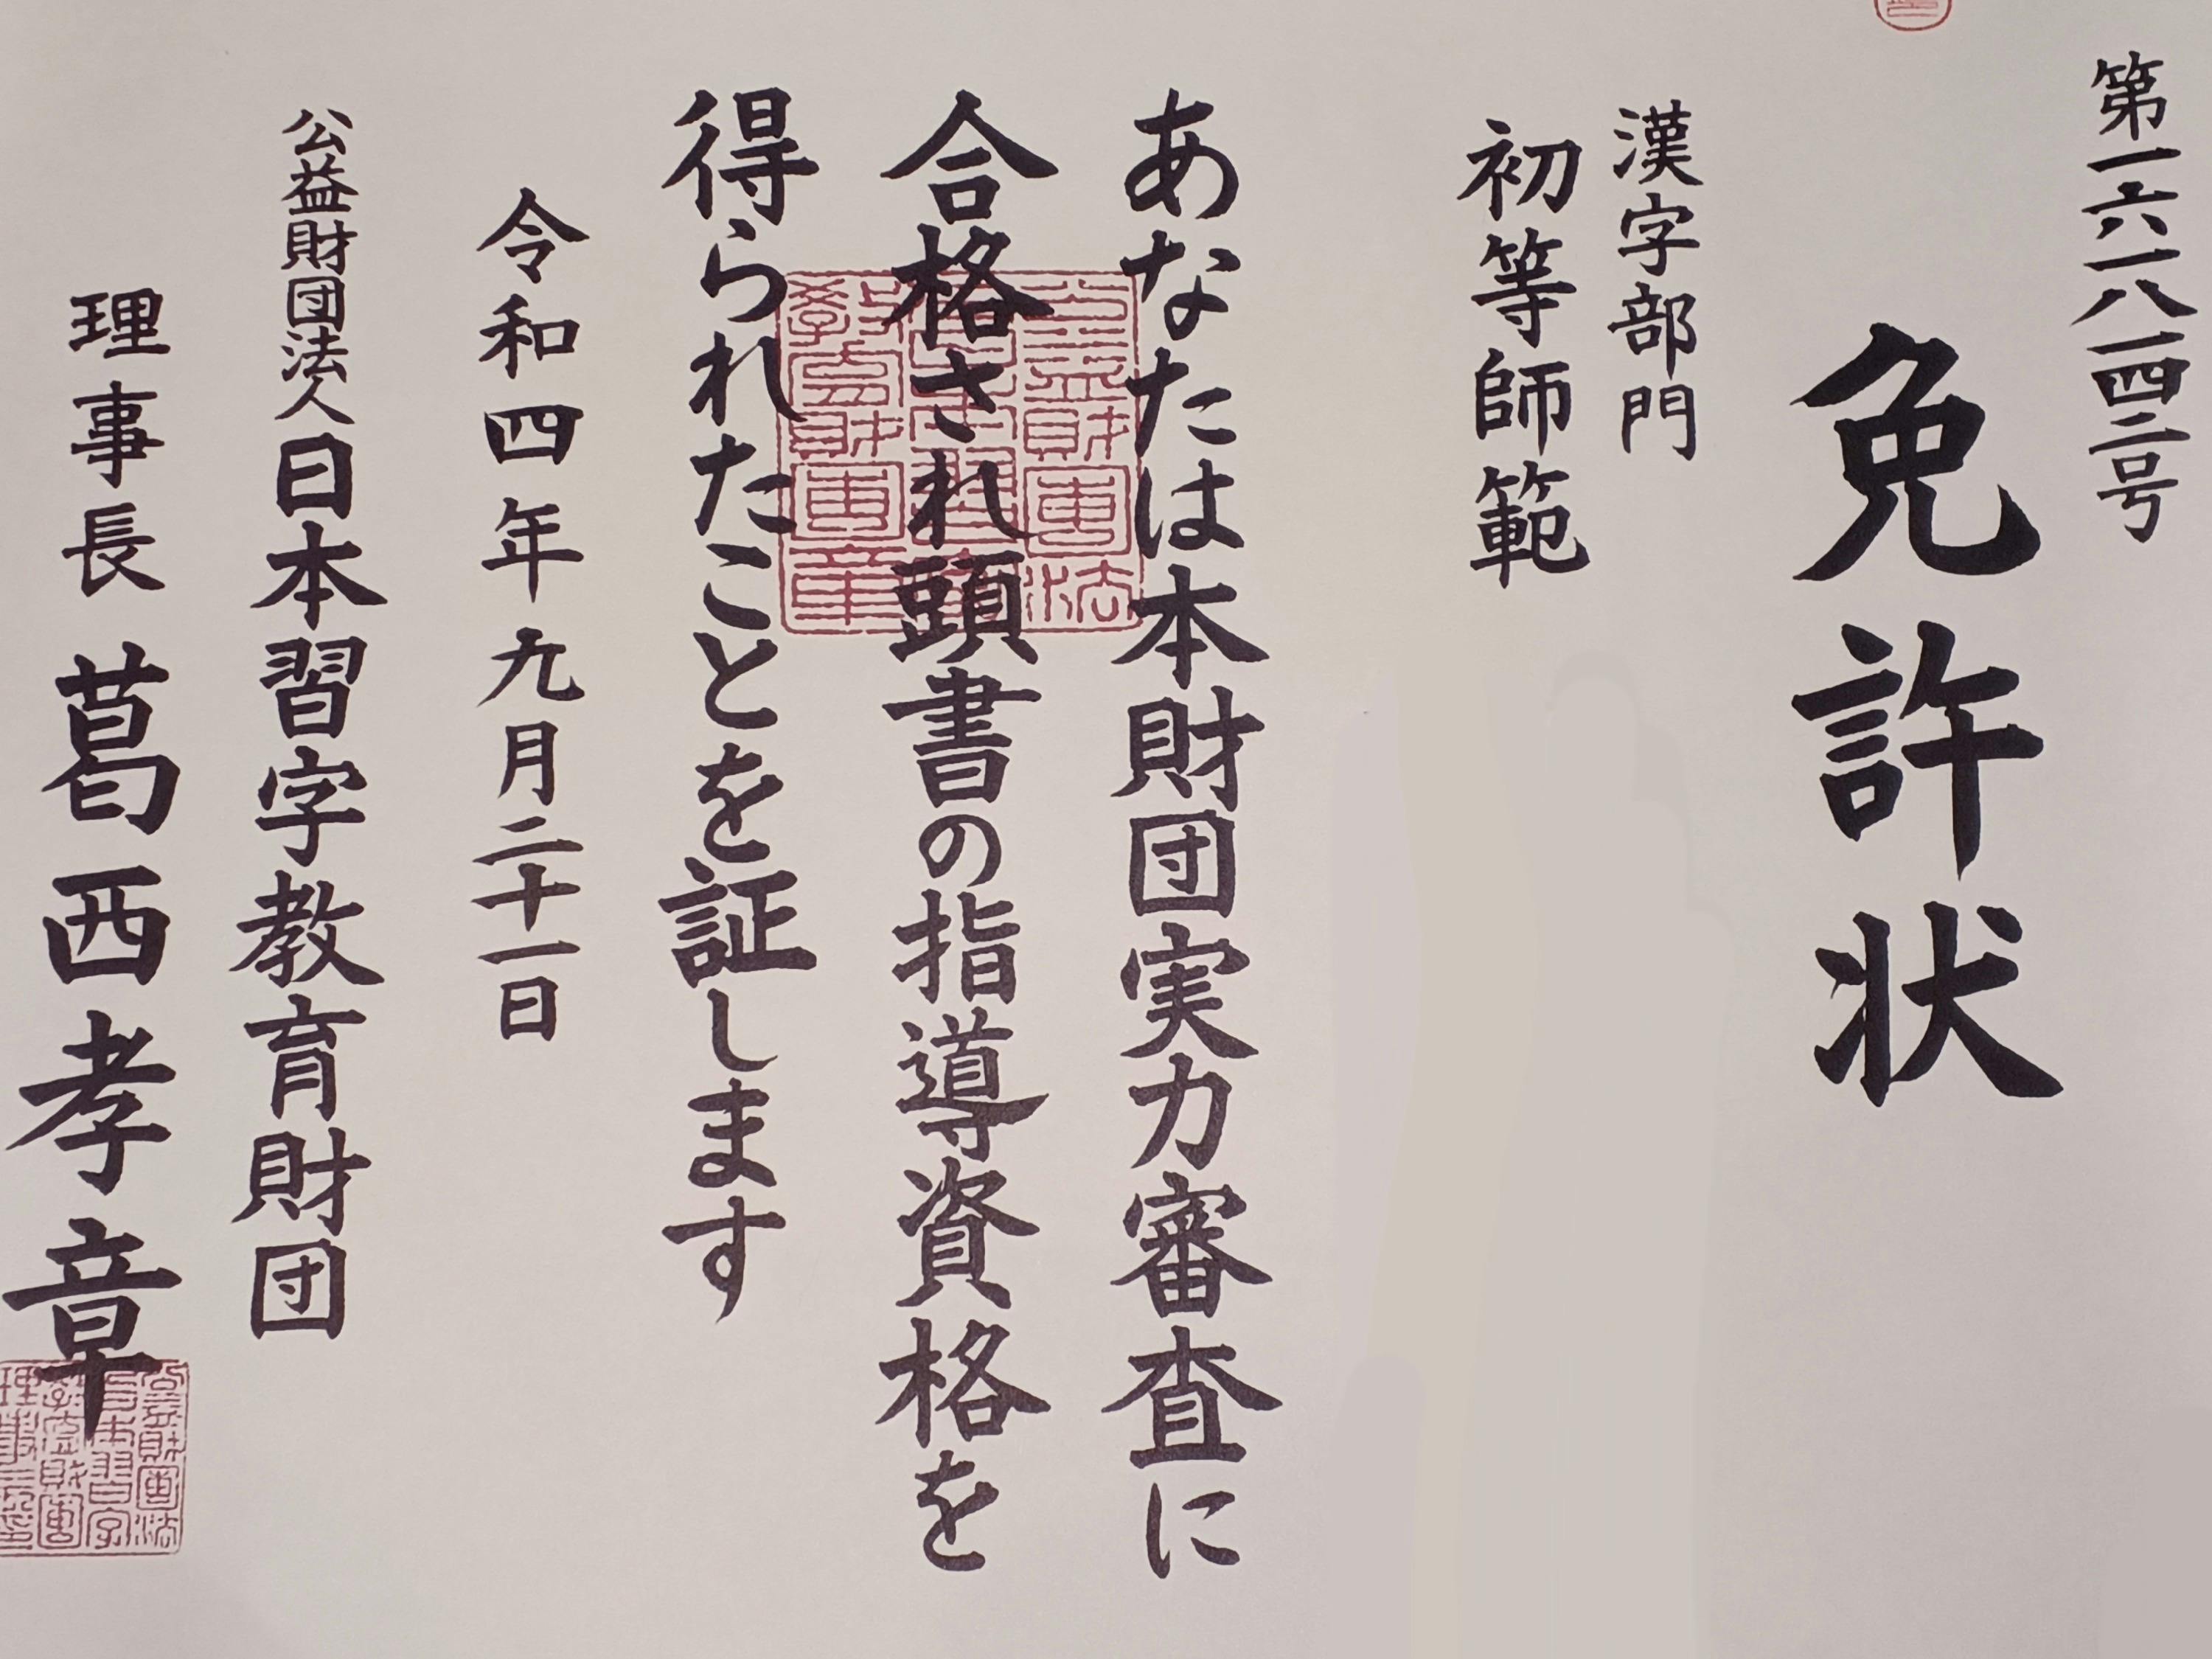 第一六一八一四二号
免許状
漢字部門
初等師範
あなたは本財団実力審査に
合格され頭書の指導資格を
得られたことを証します
令和四年九月二十一日
公益財団法人日本習字教育財団
理事長 葛西孝章